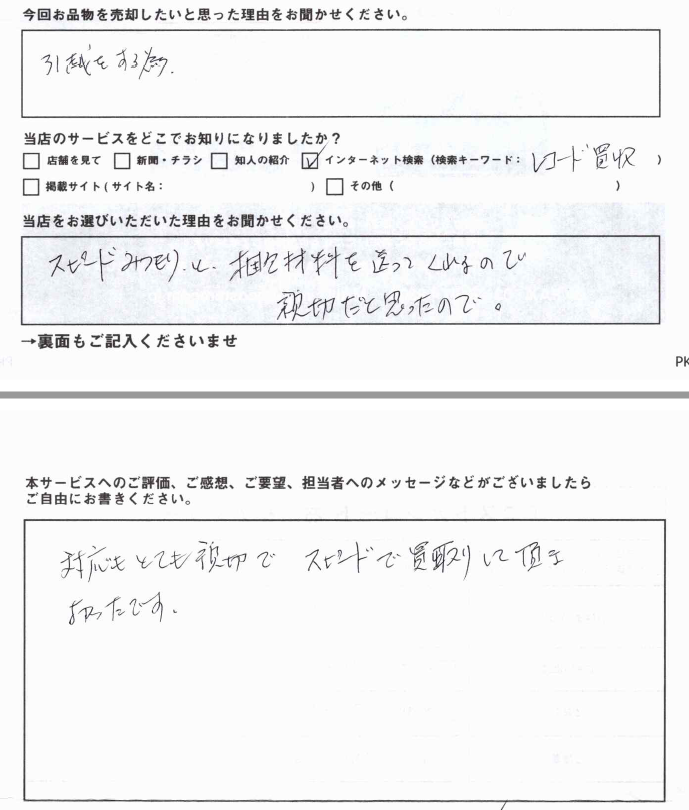 今回お品物を売却したいと思った理由をお聞かせください。
引越をする為.
当店のサービスをどこでお知りになりましたか？
店舗を見て 新聞・チラシ 知人の紹介 インターネット検索（検索キーワード： レコード買取 ）
掲載サイト(サイト名： ) その他（ ）
当店をお選びいただいた理由をお聞かせください。
スピードみつもり、と、梱包材料を送ってくれるので
親切だと思ったので。
→裏面もご記入くださいませ
PK
本サービスへのご評価、ご感想、ご要望、担当者へのメッセージなどがございましたら
ご自由にお書きください。
対応もとても親切で スピードで買取りして頂き
よかったです。